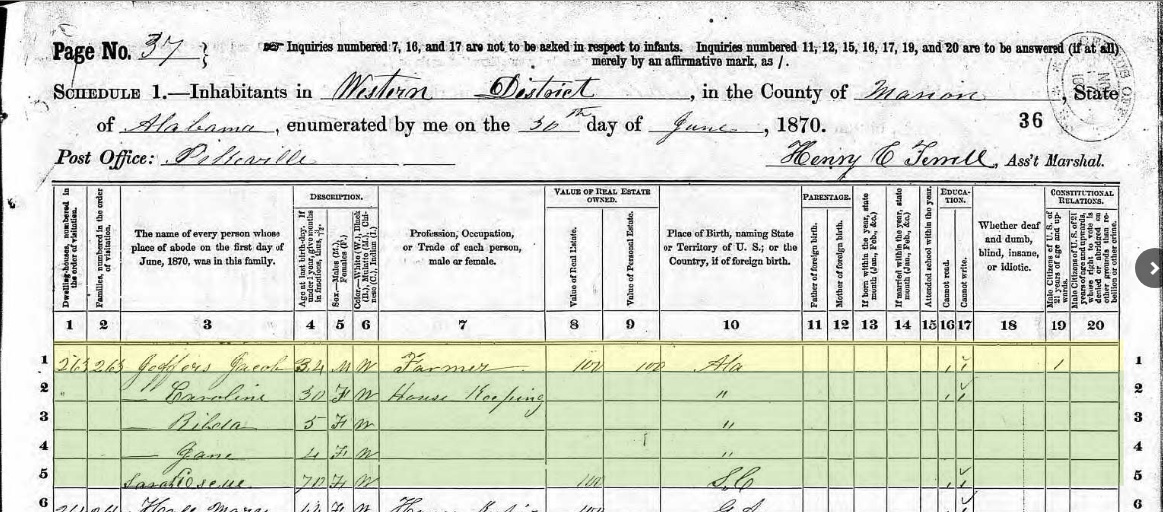 Page No. 37
Inquiries numbered 7, 16, and 17 are not to be asked in respect to infants. Inquiries numbered 11, 12, 15, 16, 17, 19, and 20 are to be answered (if at all)
merely by an affirmative mark, as /.
SCHEDULE 1.—Inhabitants in Western District, in the County of Marion, State
of Alabama, enumerated by me on the 30th day of June, 1870.
36
Post Office: Pikeville
Henry C Terrell, Ass't Marshal.
Dwelling-houses, numbered in the order of visitation.
Families, numbered in the order of visitation.
The name of every person whose place of abode on the first day of June, 1870, was in this family.
DESCRIPTION.
Age at last birth-day. If under 1 year, give months in fractions, thus, 3/12.
Sex.—Males (M.), Females (F.)
Color.—White (W.), Black (B.), Mulatto (M.), Chinese (C.), Indian (I.)
Profession, Occupation, or Trade of each person, male or female.
VALUE OF REAL ESTATE OWNED.
Value of Real Estate.
Value of Personal Estate.
Place of Birth, naming State or Territory of U. S.; or the Country, if of foreign birth.
PARENTAGE.
Father of foreign birth.
Mother of foreign birth.
If born within the year, state month (Jan., Feb., &c.)
If married within the year, state month (Jan., Feb., &c.)
Attended school within the year.
EDUCATION.
Cannot read.
Cannot write.
Whether deaf and dumb, blind, insane, or idiotic.
CONSTITUTIONAL RELATIONS.
Male Citizens of U. S. of 21 years of age and upwards.
Male Citizens of U. S. of 21 years of age and upwards, whose right to vote is denied or abridged on other grounds than rebellion or other crime.
1 2 3 4 5 6 7 8 9 10 11 12 13 14 15 16 17 18 19 20
1 263 263 Jeffers Jacob 34 M W Farmer 100 100 Ala 1 1
2 " — Caroline 30 F W House Keeping " 2
3 — 5 F W " 3
4 — Jane 4 F W " 4
5 Sarah 70 F W 100 S.C 5
6 Mary 6